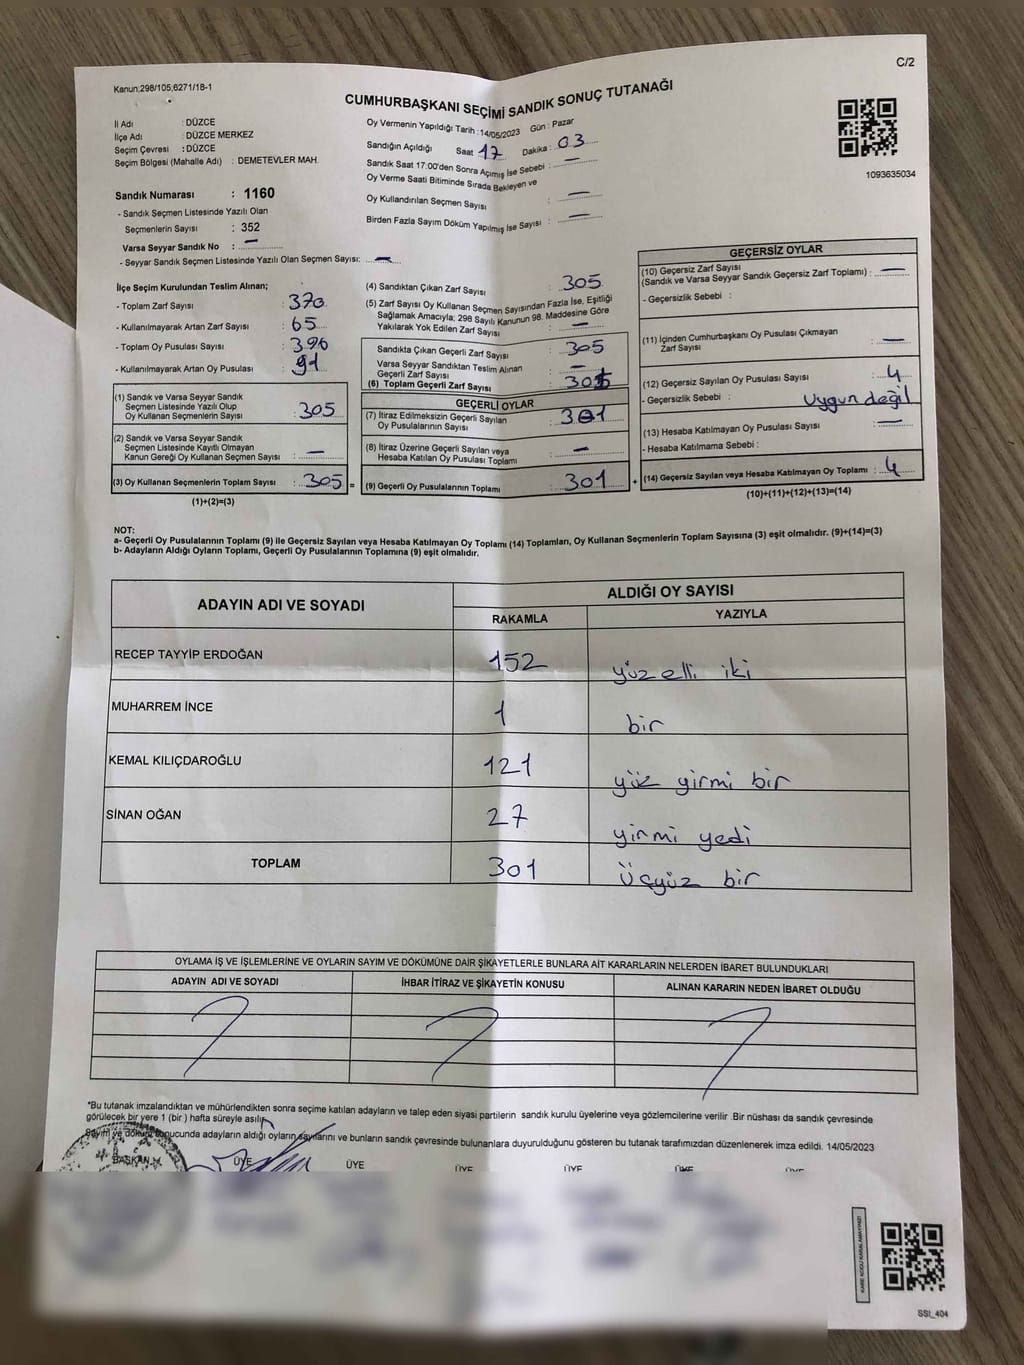 Kanun;298/105,6271/18-1
C/2
CUMHURBAŞKANI SEÇİMİ SANDIK SONUÇ TUTANAĞI
İl Adı : DÜZCE
İlçe Adı : DÜZCE MERKEZ
Seçim Çevresi : DÜZCE
Seçim Bölgesi (Mahalle Adı) : DEMETEVLER MAH.
Oy Vermenin Yapıldığı Tarih : 14/05/2023 Gün : Pazar
Sandığın Açıldığı Saat 17 Dakika : 03
Sandık Saat 17:00'den Sonra Açımış İse Sebebi : —
Oy Verme Saati Bitiminde Sırada Bekleyen ve
Oy Kullandırılan Seçmen Sayısı : —
Birden Fazla Sayım Döküm Yapılmış İse Sayısı : —
1093635034
Sandık Numarası : 1160
- Sandık Seçmen Listesinde Yazılı Olan
Seçmenlerin Sayısı : 352
Varsa Seyyar Sandık No : —
- Seyyar Sandık Seçmen Listesinde Yazılı Olan Seçmen Sayısı: —
İlçe Seçim Kurulundan Teslim Alınan;
- Toplam Zarf Sayısı : 370
- Kullanılmayarak Artan Zarf Sayısı : 65
- Toplam Oy Pusulası Sayısı : 396
- Kullanılmayarak Artan Oy Pusulası : 91
(1) Sandık ve Varsa Seyyar Sandık
Seçmen Listesinde Yazılı Olup
Oy Kullanan Seçmenlerin Sayısı : 305
(2) Sandık ve Varsa Seyyar Sandık
Seçmen Listesinde Kayıtlı Olmayan
Kanun Gereği Oy Kullanan Seçmen Sayısı : —
(3) Oy Kullanan Seçmenlerin Toplam Sayısı : 305 =
(1)+(2)=(3)
(4) Sandıktan Çıkan Zarf Sayısı : 305
(5) Zarf Sayısı Oy Kullanan Seçmen Sayısından Fazla İse, Eşitliği
Sağlamak Amacıyla; 298 Sayılı Kanunun 98. Maddesine Göre
Yakılarak Yok Edilen Zarf Sayısı : —
Sandıkta Çıkan Geçerli Zarf Sayısı : 305
Varsa Seyyar Sandıktan Teslim Alınan
Geçerli Zarf Sayısı : —
(6) Toplam Geçerli Zarf Sayısı : 305
GEÇERLİ OYLAR
(7) İtiraz Edilmeksizin Geçerli Sayılan
Oy Pusulalarının Sayısı : 301
(8) İtiraz Üzerine Geçerli Sayılan veya
Hesaba Katılan Oy Pusulası Toplamı : —
(9) Geçerli Oy Pusulalarının Toplamı : 301 +
GEÇERSİZ OYLAR
(10) Geçersiz Zarf Sayısı
(Sandık ve Varsa Seyyar Sandık Geçersiz Zarf Toplamı) : —
- Geçersizlik Sebebi :
(11) İçinden Cumhurbaşkanı Oy Pusulası Çıkmayan
Zarf Sayısı : —
(12) Geçersiz Sayılan Oy Pusulası Sayısı : 4
- Geçersizlik Sebebi : uygun değil
(13) Hesaba Katılmayan Oy Pusulası Sayısı : —
- Hesaba Katılmama Sebebi :
(14) Geçersiz Sayılan veya Hesaba Katılmayan Oy Toplamı : 4
(10)+(11)+(12)+(13)=(14)
NOT:
a- Geçerli Oy Pusulalarının Toplamı (9) ile Geçersiz Sayılan veya Hesaba Katılmayan Oy Toplamı (14) Toplamları, Oy Kullanan Seçmenlerin Toplam Sayısına (3) eşit olmalıdır. (9)+(14)=(3)
b- Adayların Aldığı Oyların Toplamı, Geçerli Oy Pusulalarının Toplamına (9) eşit olmalıdır.
ADAYIN ADI VE SOYADI
ALDIĞI OY SAYISI
RAKAMLA YAZIYLA
RECEP TAYYİP ERDOĞAN 152 yüz elli iki
MUHARREM İNCE 1 bir
KEMAL KILIÇDAROĞLU 121 yüz yirmi bir
SİNAN OĞAN 27 yirmi yedi
TOPLAM 301 Üçyüz bir
OYLAMA İŞ VE İŞLEMLERİNE VE OYLARIN SAYIM VE DÖKÜMÜNE DAİR ŞİKAYETLERLE BUNLARA AİT KARARLARIN NELERDEN İBARET BULUNDUKLARI
ADAYIN ADI VE SOYADI İHBAR İTİRAZ VE ŞİKAYETİN KONUSU ALINAN KARARIN NEDEN İBARET OLDUĞU
*Bu tutanak imzalandıktan ve mühürlendikten sonra seçime katılan adayların ve talep eden siyasi partilerin sandık kurulu üyelerine veya gözlemcilerine verilir .Bir nüshası da sandık çevresinde
görülecek bir yere 1 (bir ) hafta süreyle asılır.
Sayım ve döküm sonucunda adayların aldığı oyların sayılarını ve bunların sandık çevresinde bulunanlara duyurulduğunu gösteren bu tutanak tarafımızdan düzenlenerek imza edildi. 14/05/2023
BAŞKAN ÜYE ÜYE ÜYE ÜYE ÜYE ÜYE
KARE KODU KARALAMAYINIZ!
SSI_404